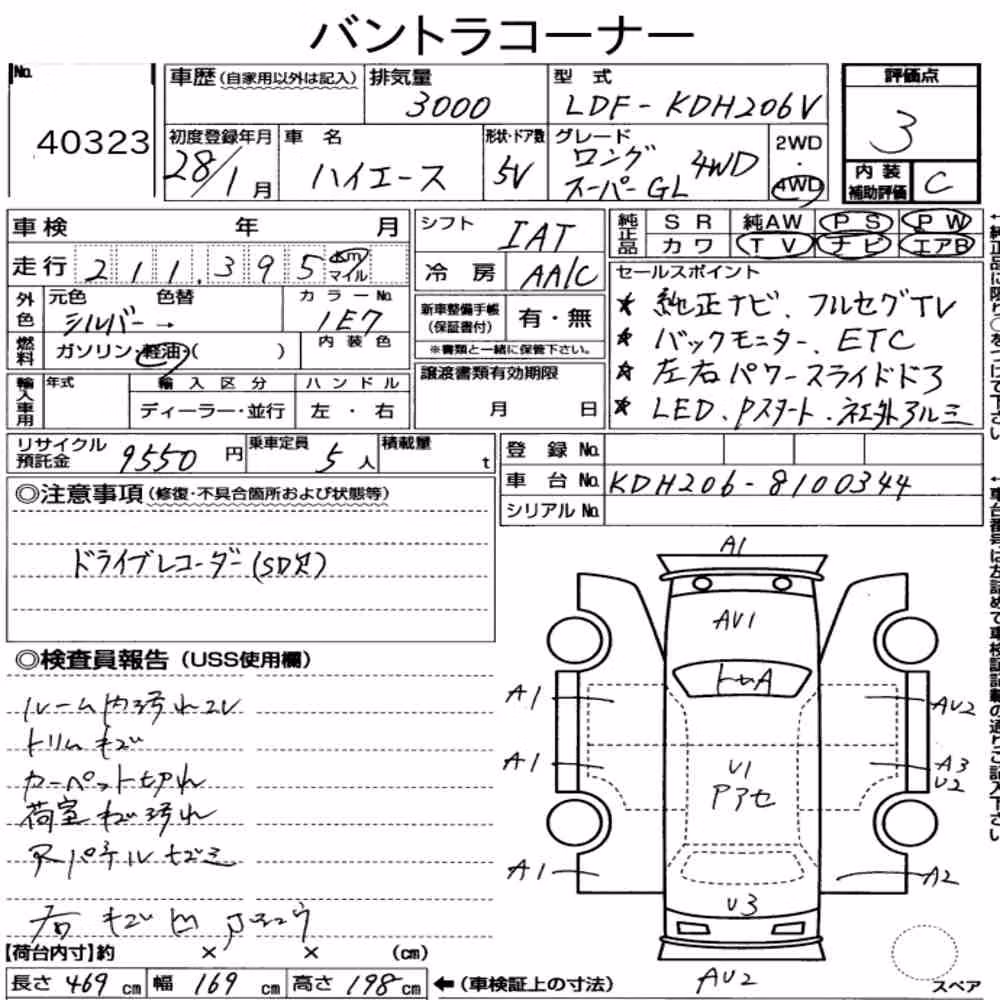 バントラコーナー
No.
40323
車歴(自家用以外は記入)
排気量
3000
型 式
LDF-KDH206V
評価点
3
初度登録年月
28/1月
車 名
ハイエース
形状・ドア数
5V
グレード
ロング
スーパーGL
4WD
2WD
・
4WD
内 装
補助評価
C
車検 年 月
シフト
IAT
純正品
SR 純AW PS PW
カワ TV ナビ エアB
走行 211,395 km マイル
冷 房
AA/C
セールスポイント
★ 純正ナビ、フルセグTV
★ バックモニター、ETC
★ 左右パワースライドドア
★ LED、Pスタート、社外アルミ
外色
元色 色替
シルバー→
カラーNo.
1E7
新車整備手帳
(保証書付)
有・無
※書類と一緒に保管下さい。
燃料
ガソリン・軽油・( )
内装色
輸入車用
年式
輸入区分
ハンドル
ディーラー・並行
左・右
譲渡書類有効期限
月 日
リサイクル
預託金
9550円
乗車定員
5人
積載量
t
登 録 No.
車 台 No.
KDH206-8100344
シリアル No.
◎注意事項(修復・不具合箇所および状態等)
ドライブレコーダー(SD欠)
◎検査員報告(USS使用欄)
ルーム内汚れコゲ
トリムキズ
カーペット切れ
荷室キズ汚れ
A1
AV1
トムA
A1
AV2
A1
A3
V2
V1
Pアセ
A1
A2
V3
AV2
スペア
【荷台内寸】約 × × (cm)
長さ 469 cm 幅 169 cm 高さ 198 cm ←(車検証上の寸法)
↑純正品に限り○をつけて下さい
↑車台番号は左詰めで車検証記載の通りご記入下さい